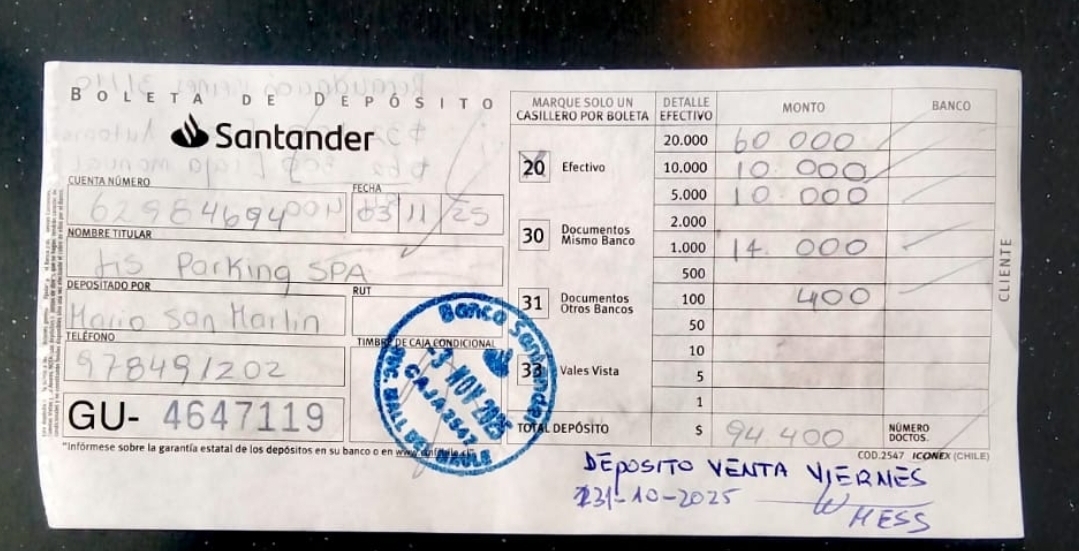 BOLETA DE DEPÓSITO
Santander
CUENTA NÚMERO
FECHA
03 11 25
NOMBRE TITULAR
Jis Parking SPA
DEPOSITADO POR
RUT
Mario San Martin
TELÉFONO
978491202
TIMBRE DE CAJA CONDICIONAL
GU- 4647119
*Infórmese sobre la garantía estatal de los depósitos en su banco o en
MARQUE SOLO UN
CASILLERO POR BOLETA
20 Efectivo
30 Documentos
Mismo Banco
31 Documentos
Otros Bancos
33 Vales Vista
TOTAL DEPÓSITO
DETALLE
EFECTIVO
MONTO
BANCO
20.000 60 000
10.000 10 000
5.000 10 000
2.000
1.000 14. 000
500
100 400
50
10
5
1
$ 94 400
NÚMERO
DOCTOS.
CLIENTE
COD.2547 ICONEX (CHILE)
Banco Santander
-3 NOV 2025
CAJA 2542
DEPOSITO VENTA VIERNES
31-10-2025
MESS